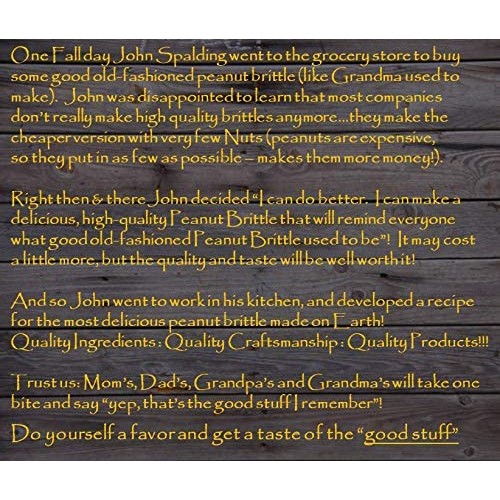 One Fall day John Spalding went to the grocery store to buy
some good old-fashioned peanut brittle (like Grandma used to
make). John was disappointed to learn that most companies
don't really make high quality brittles anymore...they make the
cheaper version with very few Nuts (peanuts are expensive,
so they put in as few as possible – makes them more money!).
Right then & there John decided "I can do better. I can make a
delicious, high-quality Peanut Brittle that will remind everyone
what good old-fashioned Peanut Brittle used to be"! It may cost
a little more, but the quality and taste will be well worth it!
And so John went to work in his kitchen, and developed a recipe
for the most delicious peanut brittle made on Earth!
Quality Ingredients : Quality Craftsmanship : Quality Products!!!
Trust us: Mom's, Dad's, Grandpa's and Grandma's will take one
bite and say "yep, that's the good stuff I remember"!
Do yourself a favor and get a taste of the "good stuff"